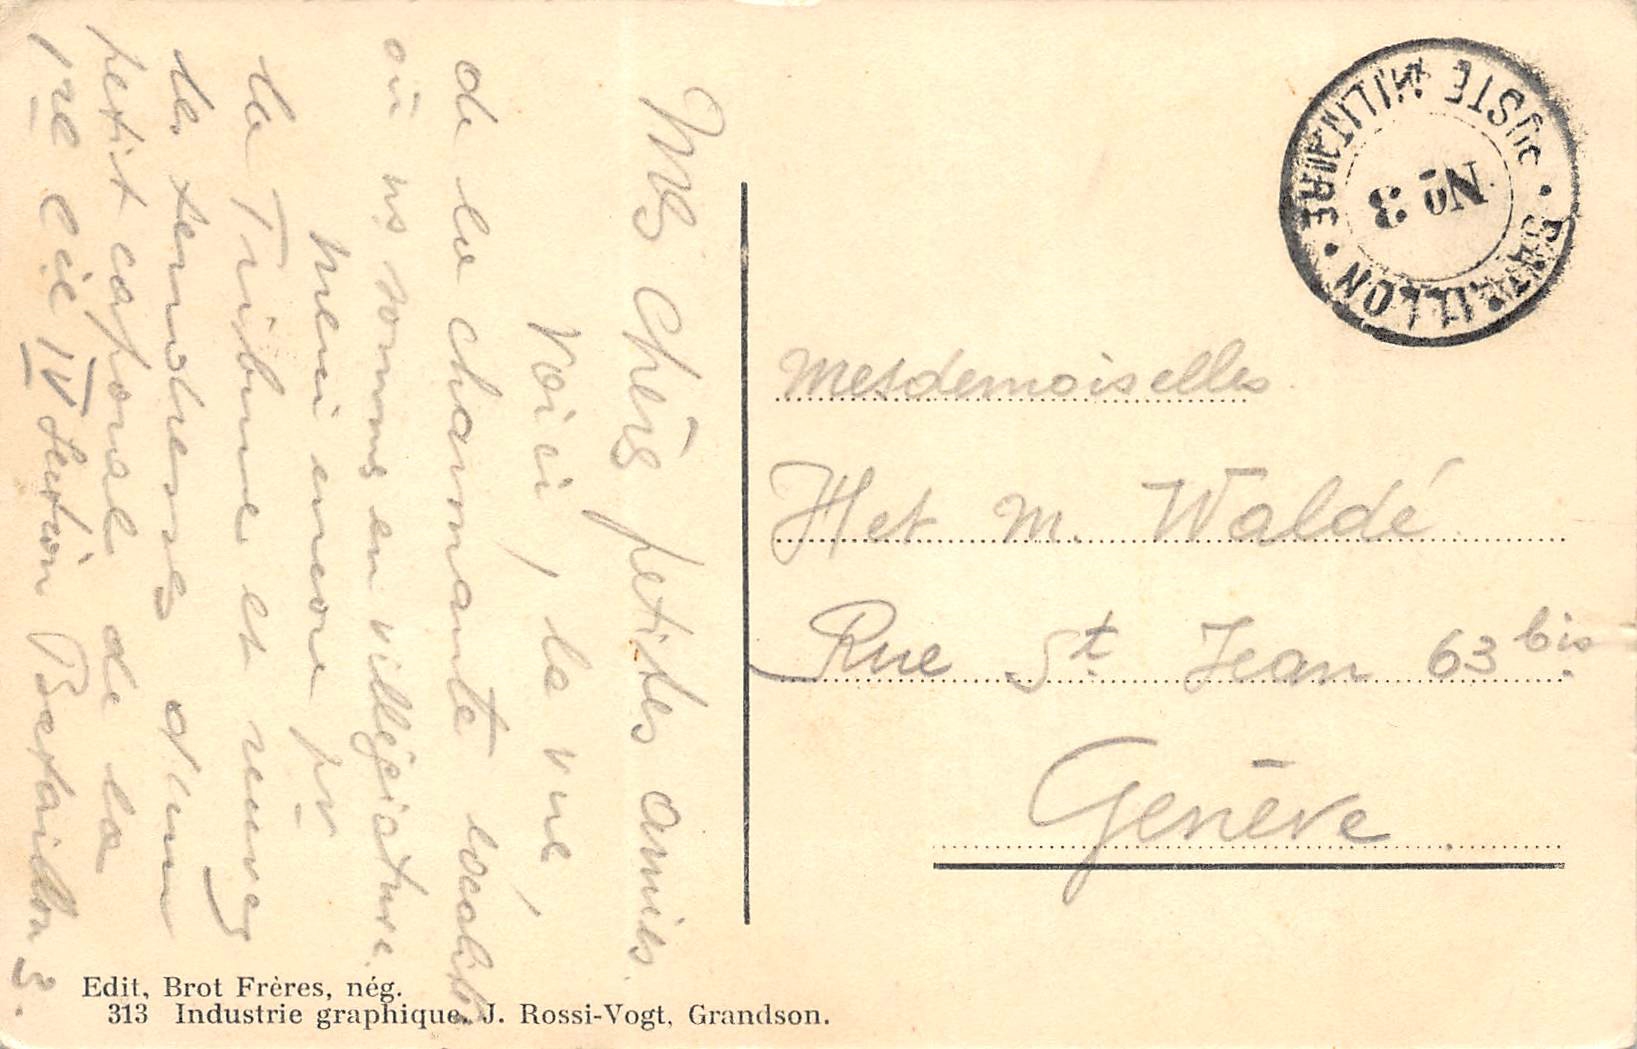 Mes chères petites amies.
Voici, la vue,
de la charmante localité
où ns sommes en villégiature.
Merci encore pr
la Tribune et recevez
les tendresses d'un
petit caporal de la
1re Cie IV Section Bataillon 3.
Mesdemoiselles
H et M. Waldé
Rue St. Jean 63 bis
Genève
POSTE MILITAIRE
No 3
BATAILLON
Edit, Brot Frères, nég.
313 Industrie graphique. J. Rossi-Vogt, Grandson.